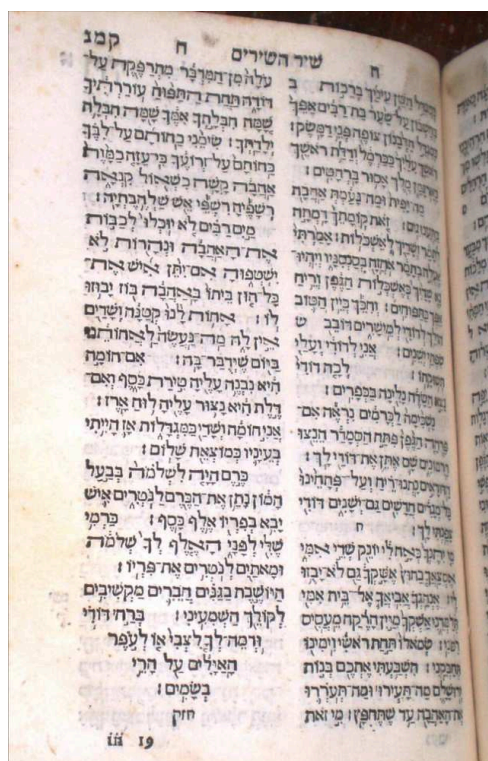 ח שיר השירים ח קמג
כמגדל השן עיניך ברכות ב
בחשבון על שער בת רבים אפך
כמגדל הלבנון צופה פני דמשק׃
ראשך עליך ככרמל ודלת ראשך
כארגמן מלך אסור ברהטים׃
מה יפית ומה נעמת אהבה
בתענוגים׃ זאת קומתך דמתה
לתמר ושדיך לאשכלות׃ אמרתי
אעלה בתמר אחזה בסנסניו ויהיו
נא שדיך כאשכלות הגפן וריח
אפך כתפוחים׃ וחכך כיין הטוב
הולך לדודי למישרים דובב ט
שפתי ישנים׃ אני לדודי ועלי
תשוקתו׃ לכה דודי
נצא השדה נלינה בכפרים׃
נשכימה לכרמים נראה אם־
פרחה הגפן פתח הסמדר הנצו
הרמונים שם אתן את־דודי לך׃
הדודאים נתנו־ריח ועל פתחינו
כל מגדים חדשים גם ישנים דודי
צפנתי לך׃ ח
מי יתנך כאח לי יונק שדי אמי
אמצאך בחוץ אשקך גם לא יבוזו
לי׃ אנהגך אביאך אל־בית אמי
תלמדני אשקך מיין הרקח מעסיס
רמני׃ שמאלו תחת ראשי וימינו
תחבקני׃ השבעתי אתכם בנות
ירושלם מה־תעירו ומה־תעררו
את־האהבה עד שתחפץ׃ מי זאת
עלה מן־המדבר מתרפקת על־
דודה תחת התפוח עוררתיך
שמה חבלתך אמך שמה חבלה
ילדתך׃ שימני כחותם על־לבך
כחותם על־זרועך כי־עזה כמות
אהבה קשה כשאול קנאה
רשפיה רשפי אש שלהבתיה׃
מים רבים לא יוכלו לכבות
את־האהבה ונהרות לא
ישטפוה אם־יתן איש את־
כל־הון ביתו באהבה בוז יבוזו
לו׃ אחות לנו קטנה ושדים
אין לה מה־נעשה לאחותנו
ביום שידבר־בה׃ אם־חומה
היא נבנה עליה טירת כסף ואם־
דלת היא נצור עליה לוח ארז׃
אני חומה ושדי כמגדלות אז הייתי
בעיניו כמוצאת שלום׃
כרם היה לשלמה בבעל
המון נתן את־הכרם לנטרים איש
יבא בפריו אלף כסף׃ כרמי
שלי לפני האלף לך שלמה
ומאתים לנטרים את־פריו׃
היושבת בגנים חברים מקשיבים
לקולך השמיעני׃ ברח דודי
ודמה־לך לצבי או לעפר
האילים על הרי
בשמים׃
חזק
iii 19